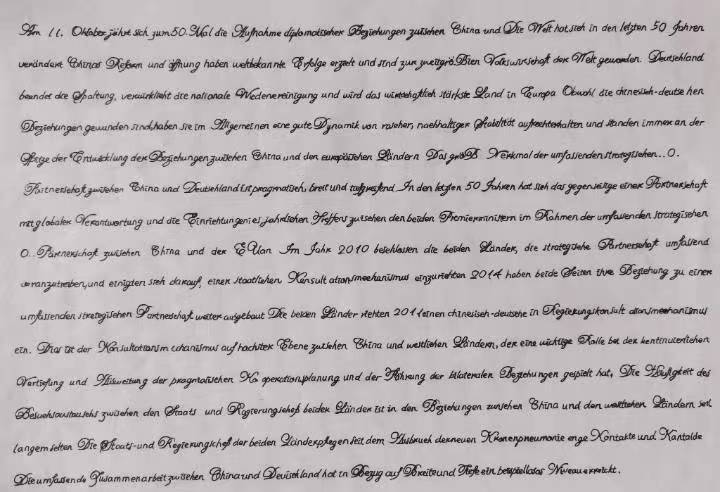 Am 11. Oktober jährt sich zum 50. Mal die Aufnahme diplomatischer Beziehungen zwischen China und Die Welt hat sich in den letzten 50 Jahren
verändert Chinas Reform und öffnung haben weltbekannte Erfolge erzielt und sind zur zweitgrößten Volkswirtschaft der Welt geworden. Deutschland
beendet die Spaltung, verwirklicht die nationale Wiedervereinigung und wird das wirtschaftlich stärkste Land in Europa Obwohl die chinesisch-deutschen
Beziehungen gewunden sind, haben sie im Allgemeinen eine gute Dynamik von rascher, nachhaltiger Stabilität aufrechterhalten und standen immer an der
Spitze der Entwicklung der Beziehungen zwischen China und den europäischen Ländern Das größ. Merkmal der umfassenden strategischen...O.
Partnerschaft zwischen China und Deutschland ist pragmatisch, breit und tiefgreifend In den letzten 50 Jahren hat sich das gegenseitige einer Partnerschaft
mit globaler Verantwortung und die Einrichtung eines jährlichen Treffens zwischen den beiden Premierministern im Rahmen der umfassenden strategischen
O.. Partnerschaft zwischen China und der EU an Im Jahr 2010 beschlossen die beiden Länder, die strategische Partnerschaft umfassend
voranzutreiben, und einigten sich darauf, einen staatlichen Konsultationsmechanismus einzurichten 2014 haben beide Seiten ihre Beziehung zu einer
umfassenden strategischen Partnerschaft weiter aufgebaut Die beiden Länder richten 2011 einen chinesisch-deutsche in Regierungskonsultationsmechanismus
ein. Dies ist der Konsultationsm echanismus auf höchster Ebene zwischen China und westlichen Ländern, der eine wichtige Rolle bei der kontinuierlichen
Vertiefung und Ausweitung der pragmatischen Ko operationsplanung und der Führung der bilateralen Beziehungen gespielt hat, Die Häufigkeit des
Besuchsaustauschs zwischen den Staats und Regierungschefs beider Länder ist in den Beziehungen zwischen China und den westlichen Ländern seit
langem selten Die Staats-und Regierungschefs der beiden Länder pflegen seit dem Ausbruch der neuen Kronenpneumonie enge Kontakte und Kontakte
Die umfassende Zusammenarbeit zwischen China und Deutschland hat in Bezug auf Breite und Tiefe ein beispielloses Niveau erreicht.